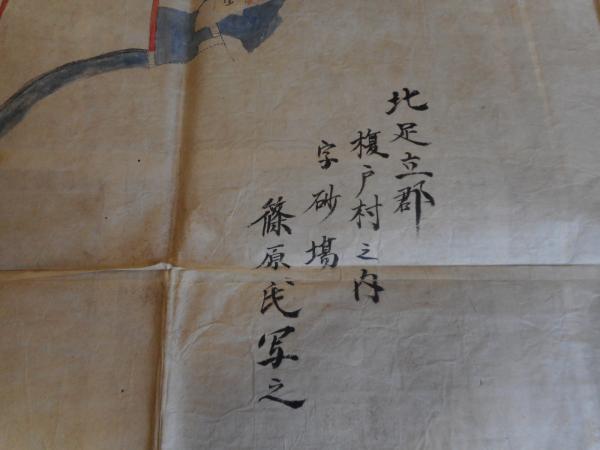 北足立郡
榎戸村之内
字砂場
篠原氏写之